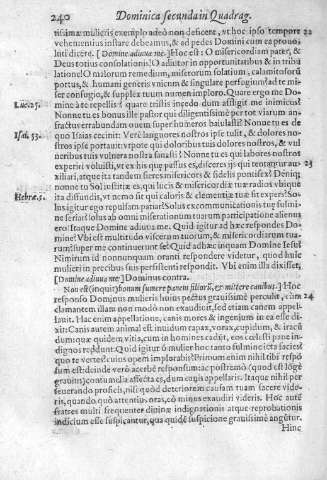 240 Dominica secunda in Quadrag.
tissimæ mulieris exemplo adeò non deficere, vt hoc ipso tempore 22
vehementius instare debeamus, & ad pedes Domini cum ea prouo,
luti dicere. [Domine adiuua me.] Hoc est: O misericordiarum pater, &
Deus totius consolationis! O adiutor in opportunitatibus & in tribu
latione! O malorum remedium, miserorum solatium, calamitosorũ
portus, & humani generis vnicum & singulare perfugium! ad te mi
ser confugio, & supplex tuum numen imploro. Quare ergo me Do-
Luc. 15. mine à te repellis? quare tristis incedo dum affligit me inimicus?
Nonne tu es bonus ille pastor qui diligentissimè per tot viarum an-
fractus errabundam ouem super humeros baiulasti? Nonne tu es de
Isai. 53. quo Isaias cecinit: Verè languores nostros ipse tulit, & dolores no-
stros ipse portauit: vtpote qui doloribus tuis dolores nostros, & vul
neribus tuis vulnera nostra sanasti? Nonne tu es qui labores nostros
experiri voluisti, vt ex his quæ passus es, disceres ijs qui tentantur au- 23
xiliari, atque ita tandem fieres misericors & fidelis pontifex? Deniq;
nonne tu Sol iustitiæ es, qui lucis & misericordiæ tuæ radios vbique
Hebræ. 5. ita diffundit, vt nemo sit qui caloris & clementiæ tuæ sit expers? So-
lus igitur ego repulsam patiar? Solus ex communicationis tuæ sulmi-
ne feriar? solus ab omni miserationum tuarum participatione alienus
ero? Itaque Domine adiuua me. Quid igitur ad hæc respondes Do-
mine? Vbi est multitudo viscerum tuorum, & misericordiarum tua-
rum? super me continuerunt se? Quid ad hæc inquam Domine Iesu?
Nimirum id nonnunquam oranti respondere videtur, quod huic
mulieri in precibus suis persistenti respondit. Vbi enim illa dixisset,
[Domine adiuua me] Dominus contra.
Non est (inquit) bonum sumere panem filiorũ, & mittere canibus.] Hoc
responso Dominus mulieris huius pectus grauissimè perculit, cùm 24
clamantem illam non modò non exaudiret, sed etiam canem appel-
lauit. Hac enim appellatione, canis mores & ingenium in ea esse di-
xit: Canis autem animal est inuidum rapax, vorax, cupidum, & iracũ
dum: quæ quidem vitia, cum in homines cadit, eos cœlesti pane in-
dignos reddunt. Quid igitur ò mulier hoc tanto fulmine icta facies?
quo te vertes? cuius opem implorabis? Primum enim nihil tibi respõ
sum est: deinde verò acerbè responsum: ac postremò (quod est lõgè
grauius) contumelia affecta es, dum canis appellaris. Itaque nihil per
seuerando proficis, nisi quòd deteriorem causam tuam facere vide-
ris, quando quò attentiùs oras, eò minus exaudiri videris. Hoc autẽ
fratres multi frequenter diuinæ indignationis atque reprobationis
indicium esse suspicantur, qua quidẽ suspicione grauissimè angũtur.
Hinc